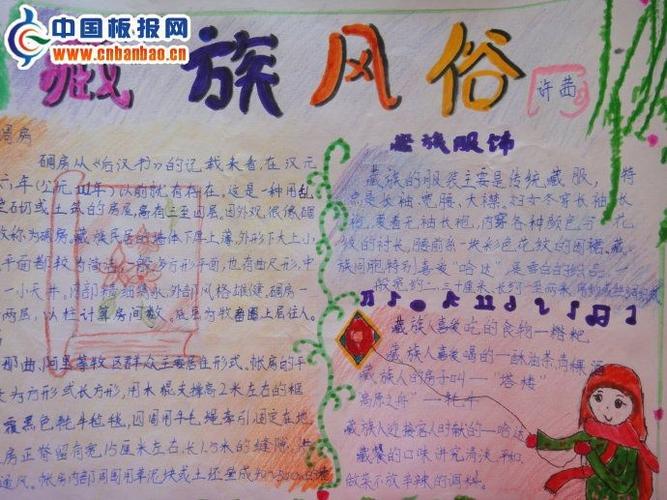 中国板报网
www.cnbanbao.cn
藏族风俗
许茜
碉房
碉房从《后汉书》的记载来看,在汉元
六年(公元111年)以前就有存在,这是一种用乱
石砌或土筑的房屋,高有三至四层,因外观很像碉
故称为碉房。藏族民居的墙体下厚上薄,外形下大上小,
平面都较为简洁,一般为方形平面,也有曲尺形,中
一小天井。内部精细隽永,外部风格雄健。碉房一
两层,以柱计算房间数。底层为牧畜圈上层住人。
那曲、阿里等牧区群众主要居住形式。帐房的平
为方形或长方形,用木棍支撑高2米左右的框
覆黑色牦牛毡毯,四周用牛毛绳牵引固定在地
房正脊留有宽15厘米左右,长1.5米的缝隙
通风。帐房内部周围用草泥块或土坯垒成
族服饰
藏族的服装主要是传统藏服,特
点是长袖、宽腰、大襟。妇女冬穿长袖长
袍,夏着无袖长袍,内穿各种颜色与花
纹的衬衫,腰前系一块彩色花纹的围裙。藏
族同胞特别喜爱“哈达”,
藏族人喜爱吃的食物一糌粑
藏族人喜爱喝的一酥油茶、青稞酒
藏族人的房子叫—“塔楼”
高原之舟”—牦牛
藏族人迎接客人时献的一哈达
藏餐的口味讲究清淡、平和,
做菜不放辛辣的调料。